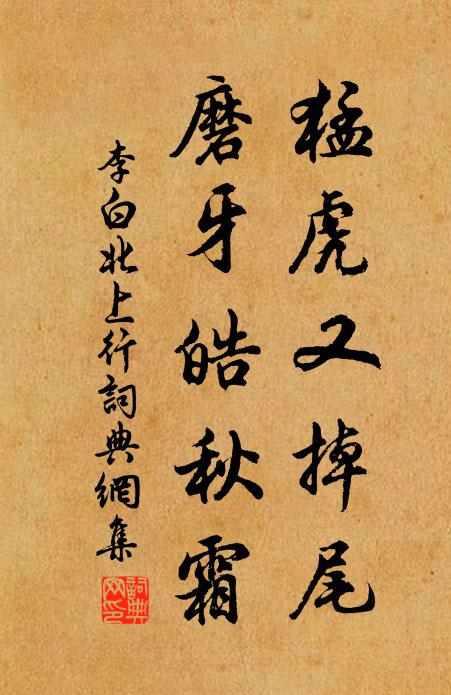 猛虎又掉尾
磨牙皓秋霜
李白北上行詞典網集
詞典網印